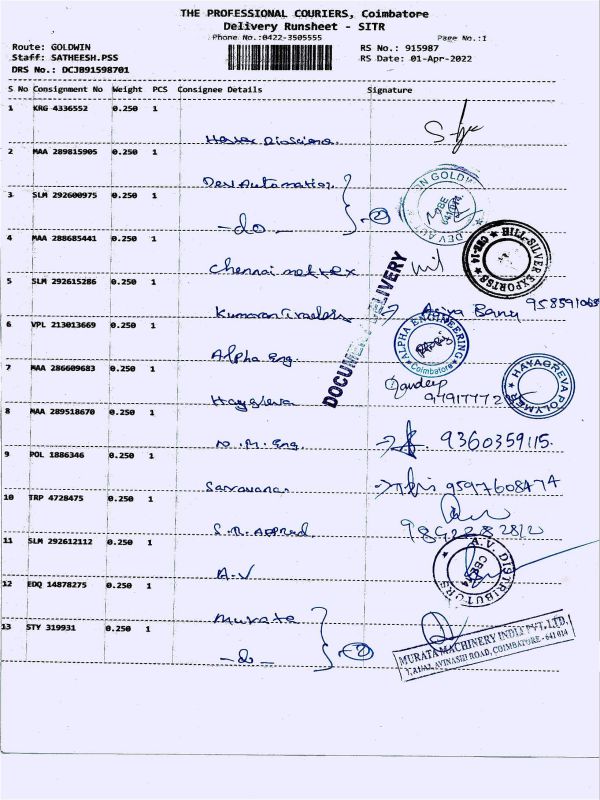 THE PROFESSIONAL COURIERS, Coimbatore
Delivery Runsheet - SITR
Phone No.:0422-3505555
Page No.:1
Route: GOLDWIN
RS No.: 915987
Staff: SATHEESH.PSS
RS Date: 01-Apr-2022
DRS No.: DCJB91598701
S No Consignment No Weight PCS Consignee Details Signature
1 KRG 4336552 0.250 1
2 MAA 289815905 0.250 1
Dev Automation
3 SLM 292600975 0.250 1
- do -
2
4 MAA 288685441 0.250 1
HILL-SILVER EXPORTSS
5 SLM 292615286 0.250 1
DOCUMENT DELIVERY
6 VPL 213013669 0.250 1
Alpha Eng.
ALPHA ENGINEERING Coimbatore
7 MAA 286609683 1
0.250
HAYAGREVA POLYMER
8 MAA 289518670 0.250 1
9360359115.
9 POL 1886346 0.250 1
9597608474
10 TRP 4728475 0.250 1
11 SLM 292612112 0.250 1
A-V
A.V. DISTRIBUTORS CBE
12 EDQ 14878275 0.250 1
Murata
13 STY 319931 0.250 1
- do -
2
MURATA MACHINERY INDIA PVT. LTD.,
AVINASHI ROAD, COIMBATORE - 641 014